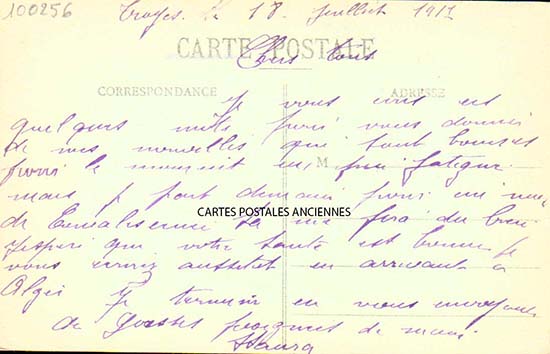 100256
Troyes le 18 Juillet 1917
CARTE POSTALE
Chers tous
CORRESPONDANCE
ADRESSE
Je vous écris ces
quelques mots pour vous donner
de mes nouvelles qui sont bonnes
pour le moment un peu fatigué
M
mais je part demain pour un mois
de sa me fera du bien
CARTES POSTALES ANCIENNES
J'espère que votre santé est bonne je
vous écrirez aussitot en arrivant a
Alger Je termine en vous envoyant
de grosses poignées de main